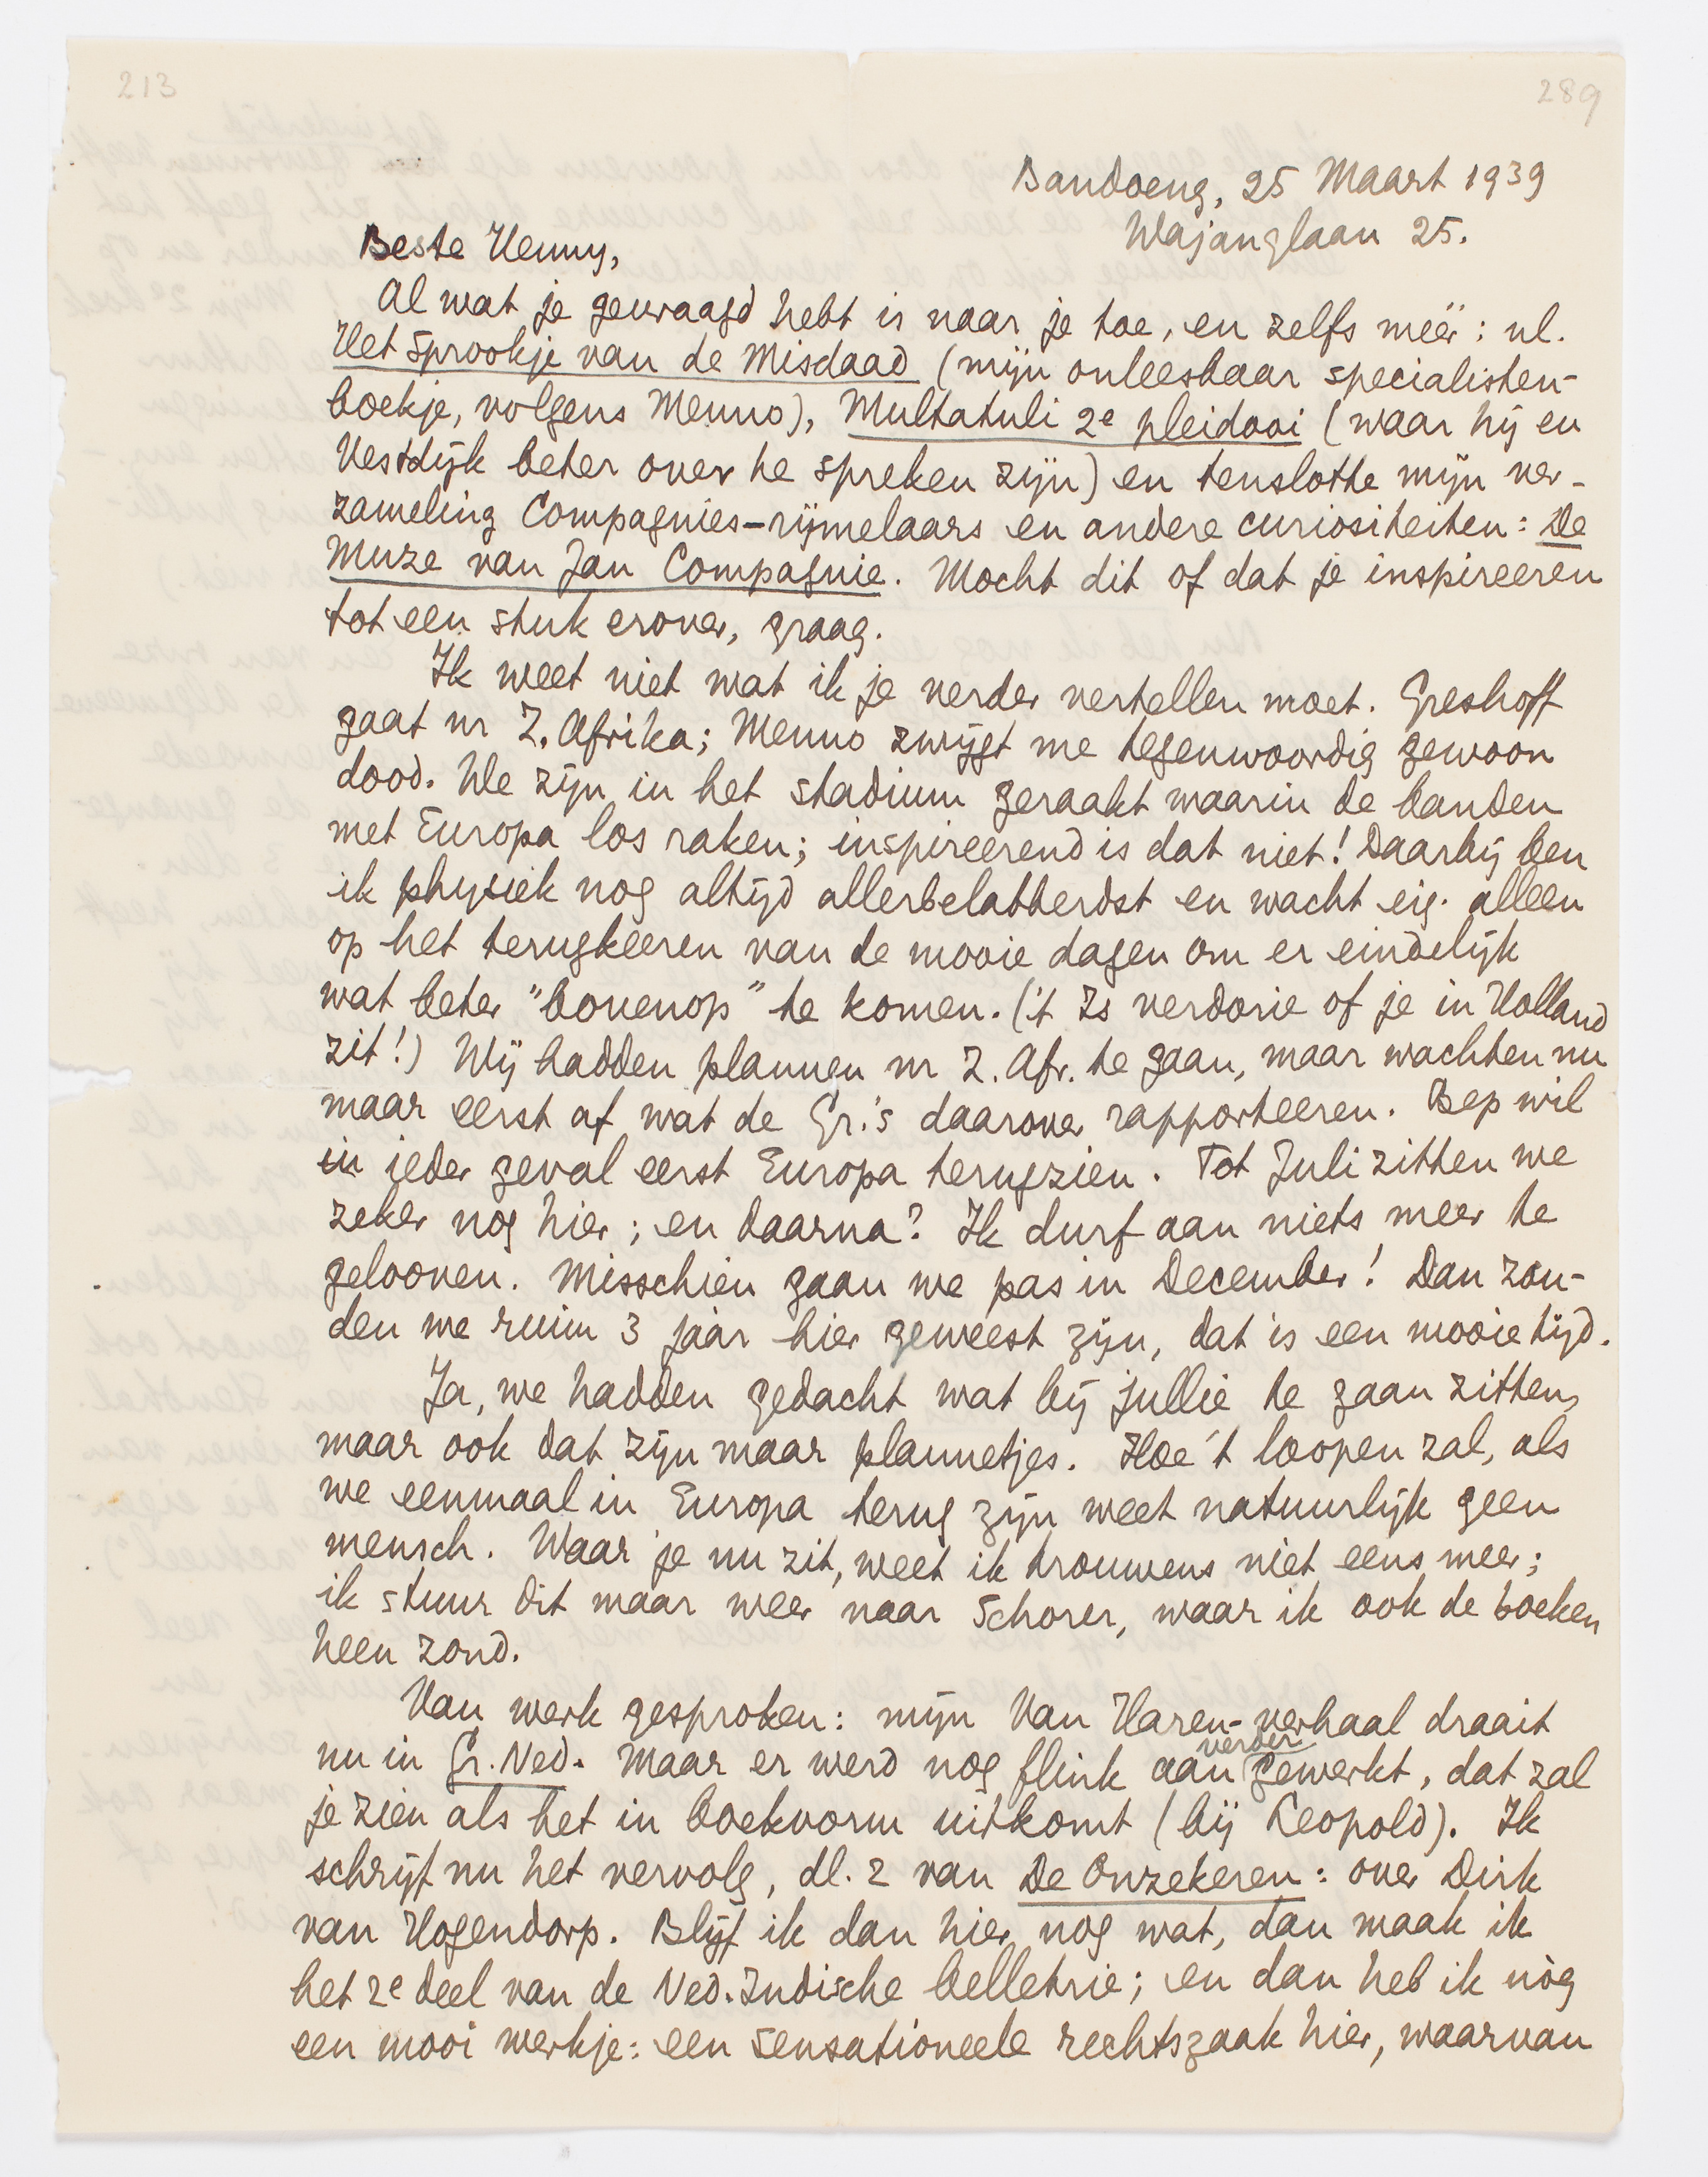 213
289
Bandoeng, 25 Maart 1939
Wajanglaan 25.
Beste Henny,
Al wat je gevraagd hebt is naar je toe, en zelfs méér: nl.
Het Sprookje van de Misdaad (mijn onleesbaar specialisten-
boekje, volgens Menno), Multatuli 2e pleidooi (waar hij en
Vestdijk beter over te spreken zijn) en tenslotte mijn ver-
zameling Compagnies-rijmelaars en andere curiositeiten: De
Muze van Jan Compagnie. Mocht dit of dat je inspireeren
tot een stuk erover, graag.
Ik weet niet wat ik je verder vertellen moet. Greshoff
gaat nr Z. Afrika; Menno zwijgt me tegenwoordig gewoon
dood. We zijn in het stadium geraakt waarin de banden
met Europa los raken; inspireerend is dat niet! Daarbij ben
ik physiek nog altijd allerbelabberdst en wacht eig. alleen
op het terugkeeren van de mooie dagen om er eindelijk
wat beter "bovenop" te komen. ('t Is verdorie of je in Holland
zit!) Wij hadden plannen nr Z. Afr. te gaan, maar wachten nu
maar eerst af wat de Gr.'s daarover rapporteeren. Bep wil
in ieder geval eerst Europa terugzien. Tot Juli zitten we
zeker nog hier; en daarna? Ik durf aan niets meer te
gelooven. Misschien gaan we pas in December! Dan zou-
den we ruim 3 jaar hier geweest zijn, dat is een mooie tijd.
Ja, we hadden gedacht wat bij jullie te gaan zitten,
maar ook dat zijn maar plannetjes. Hoe 't loopen zal, als
we eenmaal in Europa terug zijn weet natuurlijk geen
mensch. Waar je nu zit, weet ik trouwens niet eens meer;
ik stuur dit maar weer naar Schorer, waar ik ook de boeken
heen zond.
Van werk gesproken: mijn Van Haren-verhaal draait
nu in Gr. Ned. Maar er werd nog flink aan verder gewerkt, dat zal
je zien als het in boekvorm uitkomt (bij Leopold). Ik
schrijf nu het vervolg, dl. 2 van De Onzekeren: over Dirk
van Hogendorp. Blijf ik dan hier nog wat, dan maak ik
het 2e deel van de Ned. Indische belletrie; en dan heb ik nòg
een mooi werkje: een sensationeele rechtszaak hier, waarvan